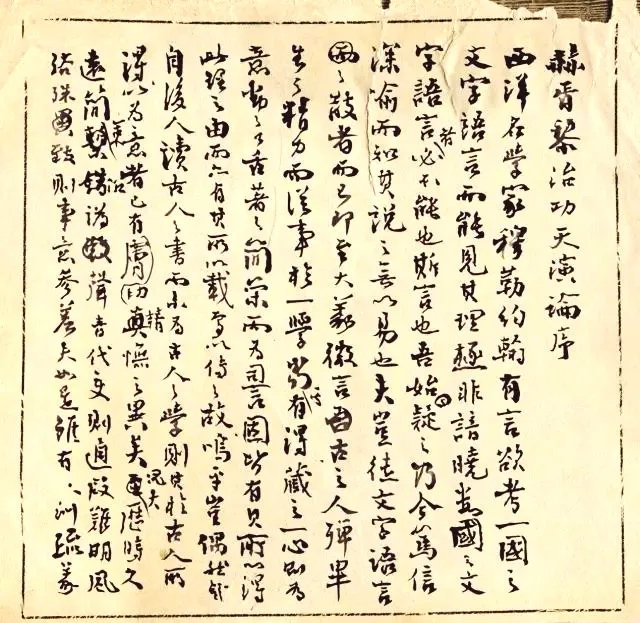 赫胥黎治功天演論序
西洋名學家穆勒約翰有言欲考一國之
文字語言而能見其理極非諳曉數國之文
字語言者必不能也斯言也吾始疑之乃今篤信
深喻而知其說之無以易也夫豈徒文字語言
之散者而已即至大義微言古之人殫畢
生之精力而從事於一學當其有得藏之一心則為
意動之口舌著之簡策而為詞言固皆有其所以得
此理之由而亦有其所以載焉以傳之故嗚乎豈偶然哉
自後人讀古人之書而未為古人之學則其於古人所
得以為意者已有膚切精憮之異矣況夫歷時久
遠簡牘沿訛聲音代變則通假難明風
俗殊致則事意參差夫如是雖有訓疏義